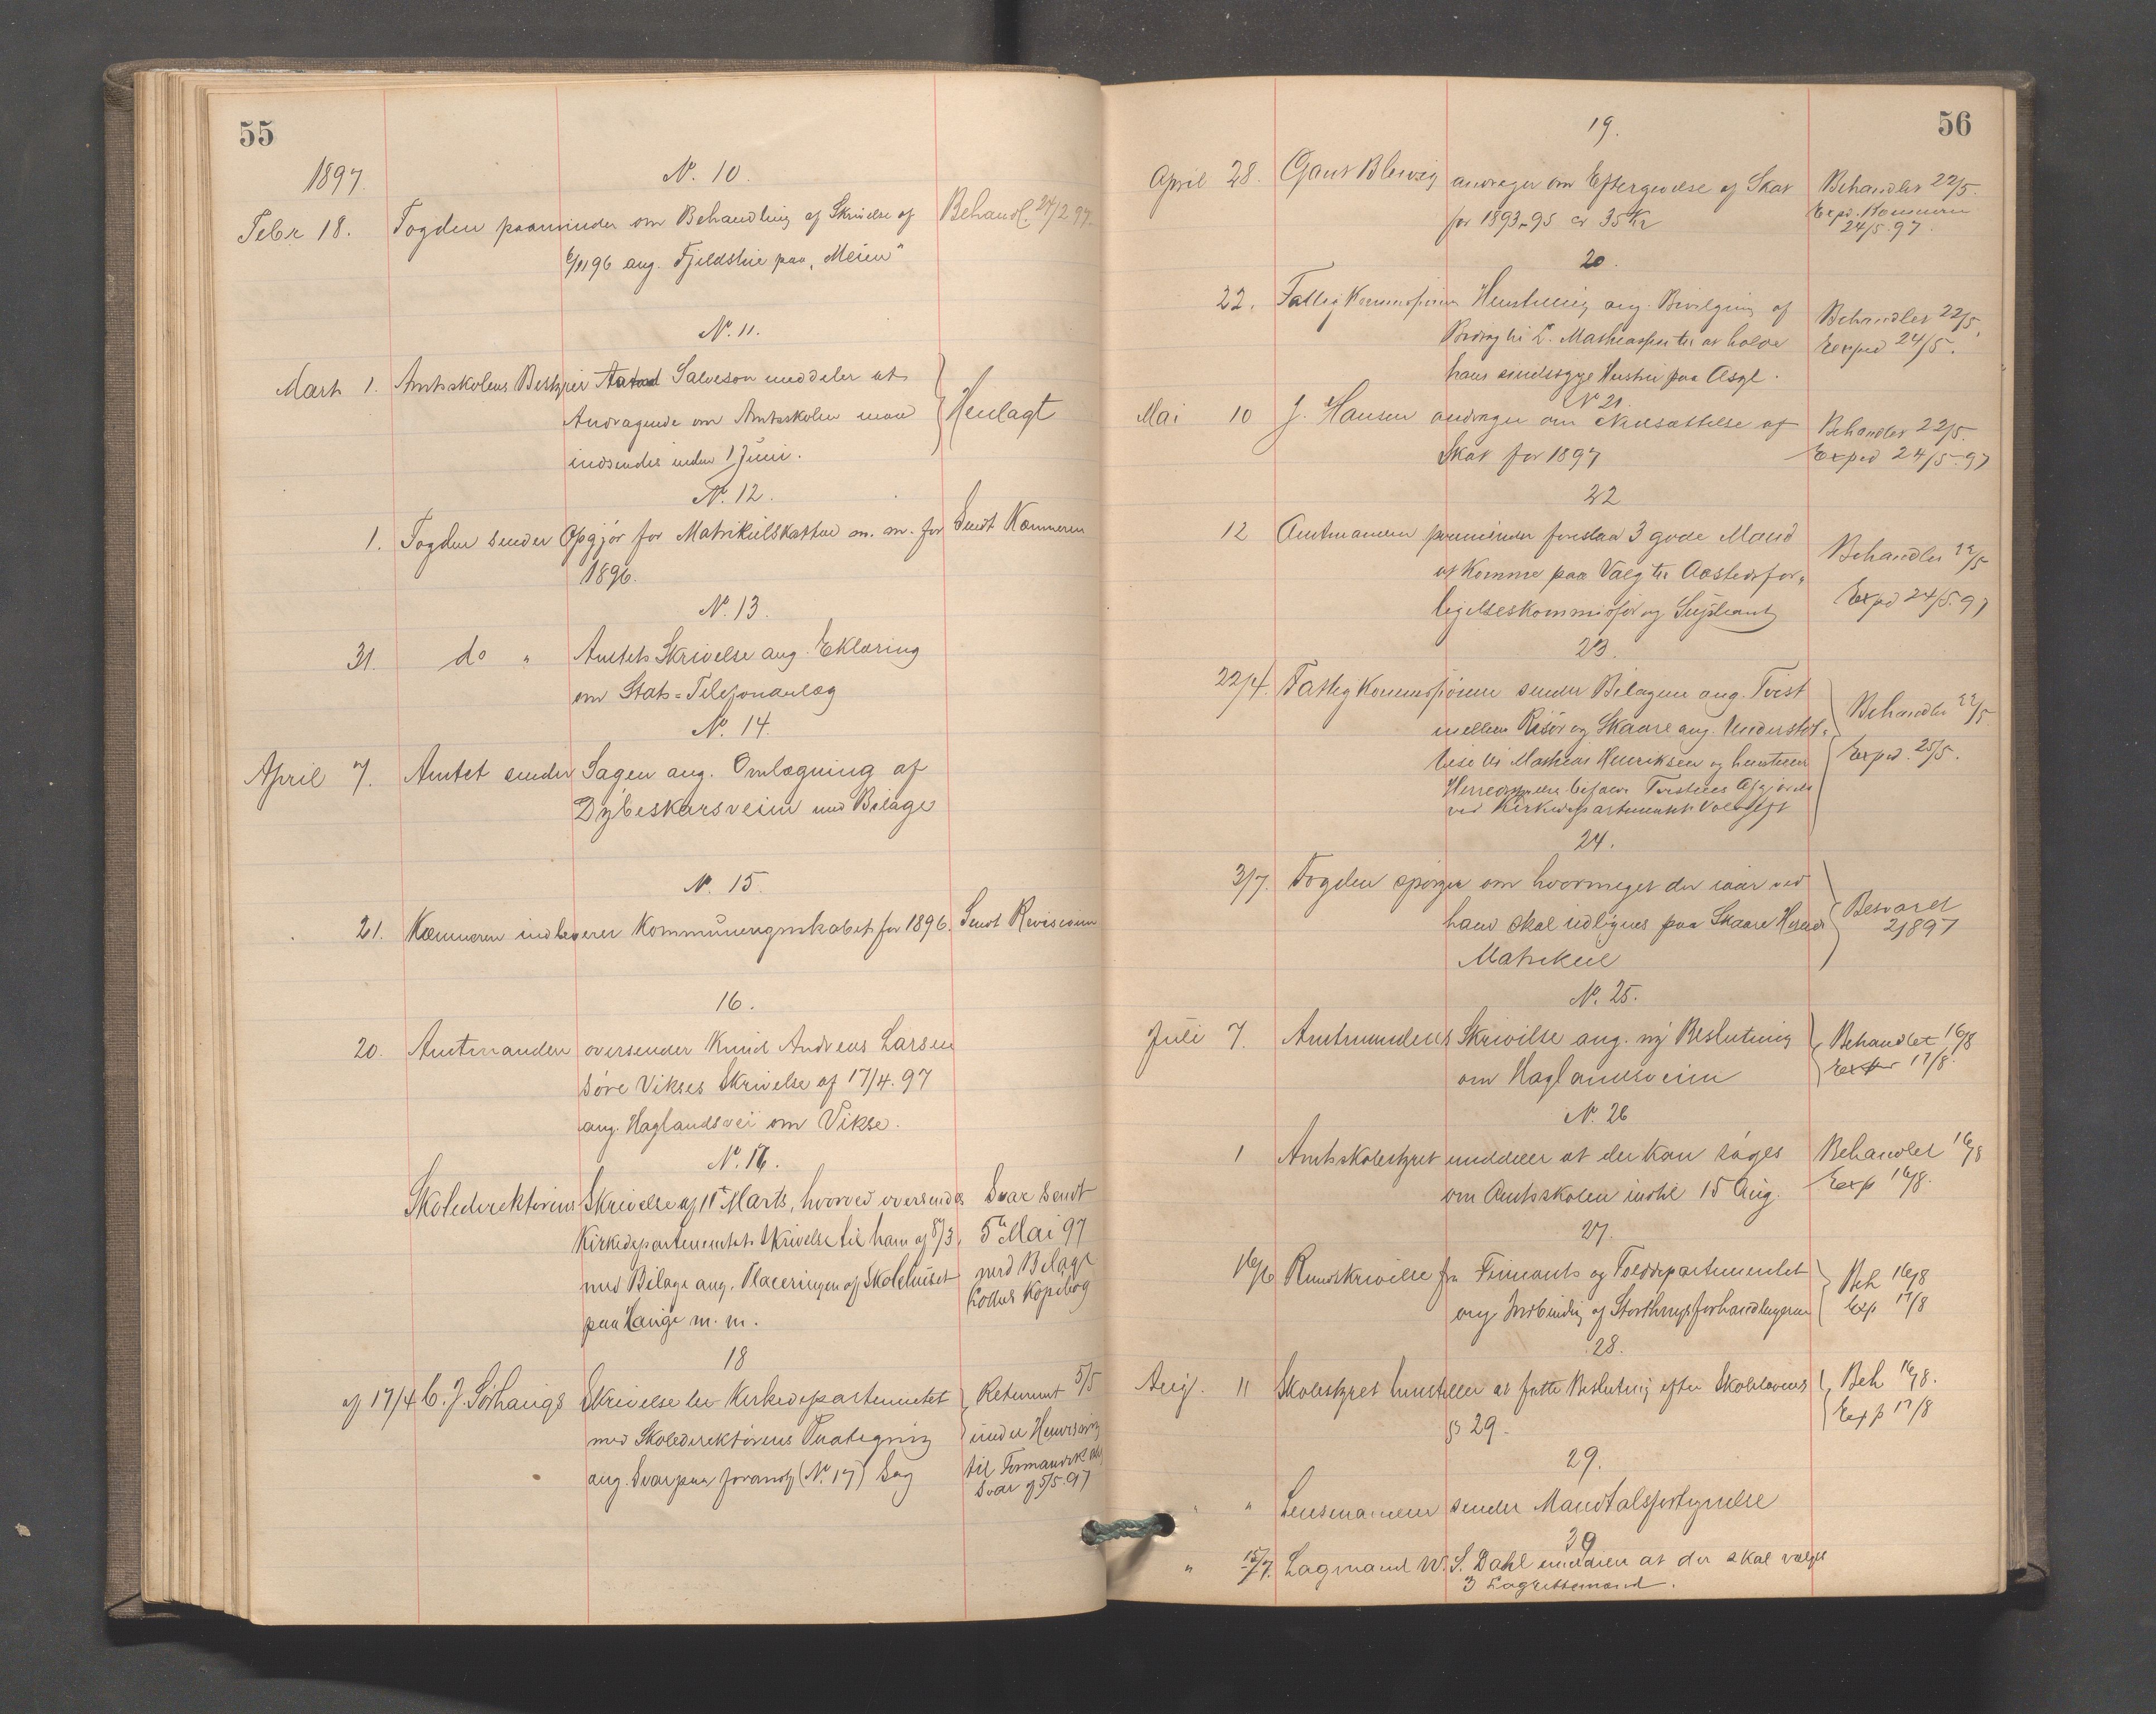 55
1897.
N. 10.
Febr 18. Fogden paaminder om Behandling af Skrivelse af Behandl. 24/2 97.
6/11 96 ang. Fjeldstie paa "Meien"
N. 11.
Marts 1. Amtsskolens Bestyrer Salveson meddeler at
Andragende om Amtsskolen maa Henlagt
indsendes inden 1 Juni.
N. 12.
1. Fogden sender Opgjör for Matrikülskatten m. m. for Sendt Kæmneren
1896.
N. 13.
31. do " Amtets Skrivelse ang. Eklæring
om Stats=Telefonanlæg
N. 14.
April 7. Amtet sender Sagen ang. Omlægning af
Dybeskarsveien med Bilage
N. 15.
21. Kæmneren indleverer Kommüneregnskabet for 1896. Sendt Revisionen
16.
20. Amtmanden oversender Knud Andreas Larsen
Söre Vikses Skrivelse af 17/4. 97
ang. Haglandsvei om Vikse.
N. 17.
Skoledirektörens Skrivelse af 11 Marts, hvorved oversendes Svar sendt
Kirkedepartementets Skrivelse til ham af 8/3, 5te Mai 97
med Bilage ang. Placeringen af Skolehüset med Bilage
paa Haüge m. m. Kopibog
18
af 17/4 C. J. Sörhaügs Skrivelse til Kirkedepartementet Returnert 5/5
med Skoledirektörens Paategning ünder Henvisning
ang. Svar paa foranst (N. 17) Sag til Formandsk
Svar af 5/5. 97
56
19.
April 28. Gaut Bleivig andrager om Eftergivelse af Skat Behandlet 22/5.
for 1893-95 cr 35 Kr Exp. Kæmneren
24/5. 97.
20.
22. Fattigkommissionens Henstilling ang. Bevilgning af Behandlet 22/5.
Bidrag til L. Mathiassen til at holde Exped 24/5.
hans sindssyge Hustru paa Asyl.
N 21.
Mai 10 J. Hansen andrager om Nedsættelse af Behandlet 22/5.
Skat for 1897 Exped 24/5. 97
22
12 Amtmanden paaminder foreslaa 3 gode Mænd Behandlet 22/5
at komme paa Valg til Aastedsfor-
ligelseskommissær og Suppleant Expd 24/5. 97
23.
22/4. Fattigkommissionen sender Bilagene ang. Tvist Behandlet 22/5
mellem Risör og Skaare ang. Understöt-
telse til Mathias Henriksen og hustru Exped. 25/5.
Tvistens Afgjörelse
ved Kirkedepartementet
24.
3/7. Fogden spörger om hvormeget der iaar ved Besvaret
hand skal udlignes paa Skaare Hereds 2/897
Matrikül
N. 25.
Jüli 7. Amtmandens Skrivelse ang. ny Beslutning Behandlet 16/8
om Haglandsveien 17/8.
N. 26
1 Amtsskolestyret meddeler at der kan söges Behandlet 16/8
om Amtsskolen indtil 15 Aug. Exp 16/8.
27.
16/6 Rundskrivelse fra Finants og Tolddepartementet Beh 16/8
ang Indbinding af Storthingsforhandlingerne Exp 17/8
28.
Aug. 11 Skolestyret henstiller at fatte Beslutning efter Skolelovens Beh 16/8.
§ 29. Exp 17/8
29.
" " Lensmanden sender Mandtalsfortegnelse
30
" 15/7. Lagmand W. S. Dahl meddeler at der skal vælges
3 Lagrettemænd.